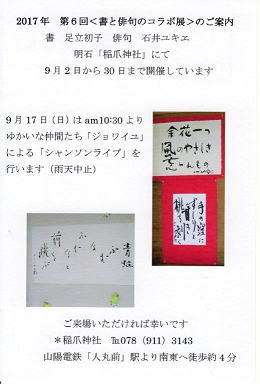 2017年　第6回＜書と俳句のコラボ展＞のご案内
書　足立初子　俳句　石井ユキエ
明石「稲爪神社」にて
9月2日から30日まで開催しています
9月17日（日）はam10:30より
ゆかいな仲間たち「ジョワイユ」
による「シャンソンライブ」を
行います（雨天中止）
手の窪に
ご来場いただければ幸いです
＊稲爪神社　℡078（911）3143
山陽電鉄「人丸前」駅より南東へ徒歩約4分